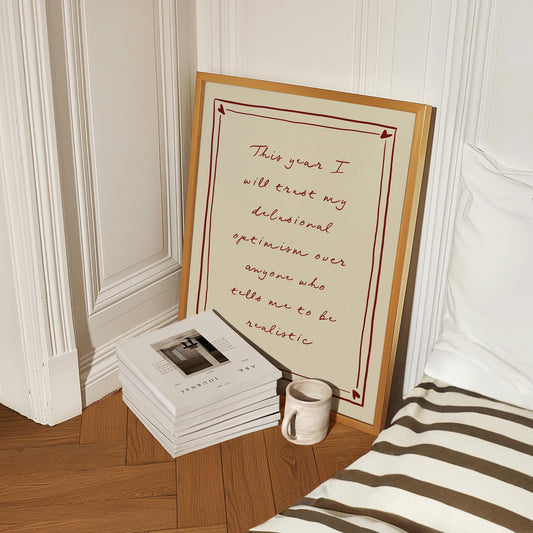 This year I
will trust my
delusional
optimism over
anyone who
tells me to be
realistic
ARK
JOURNAL